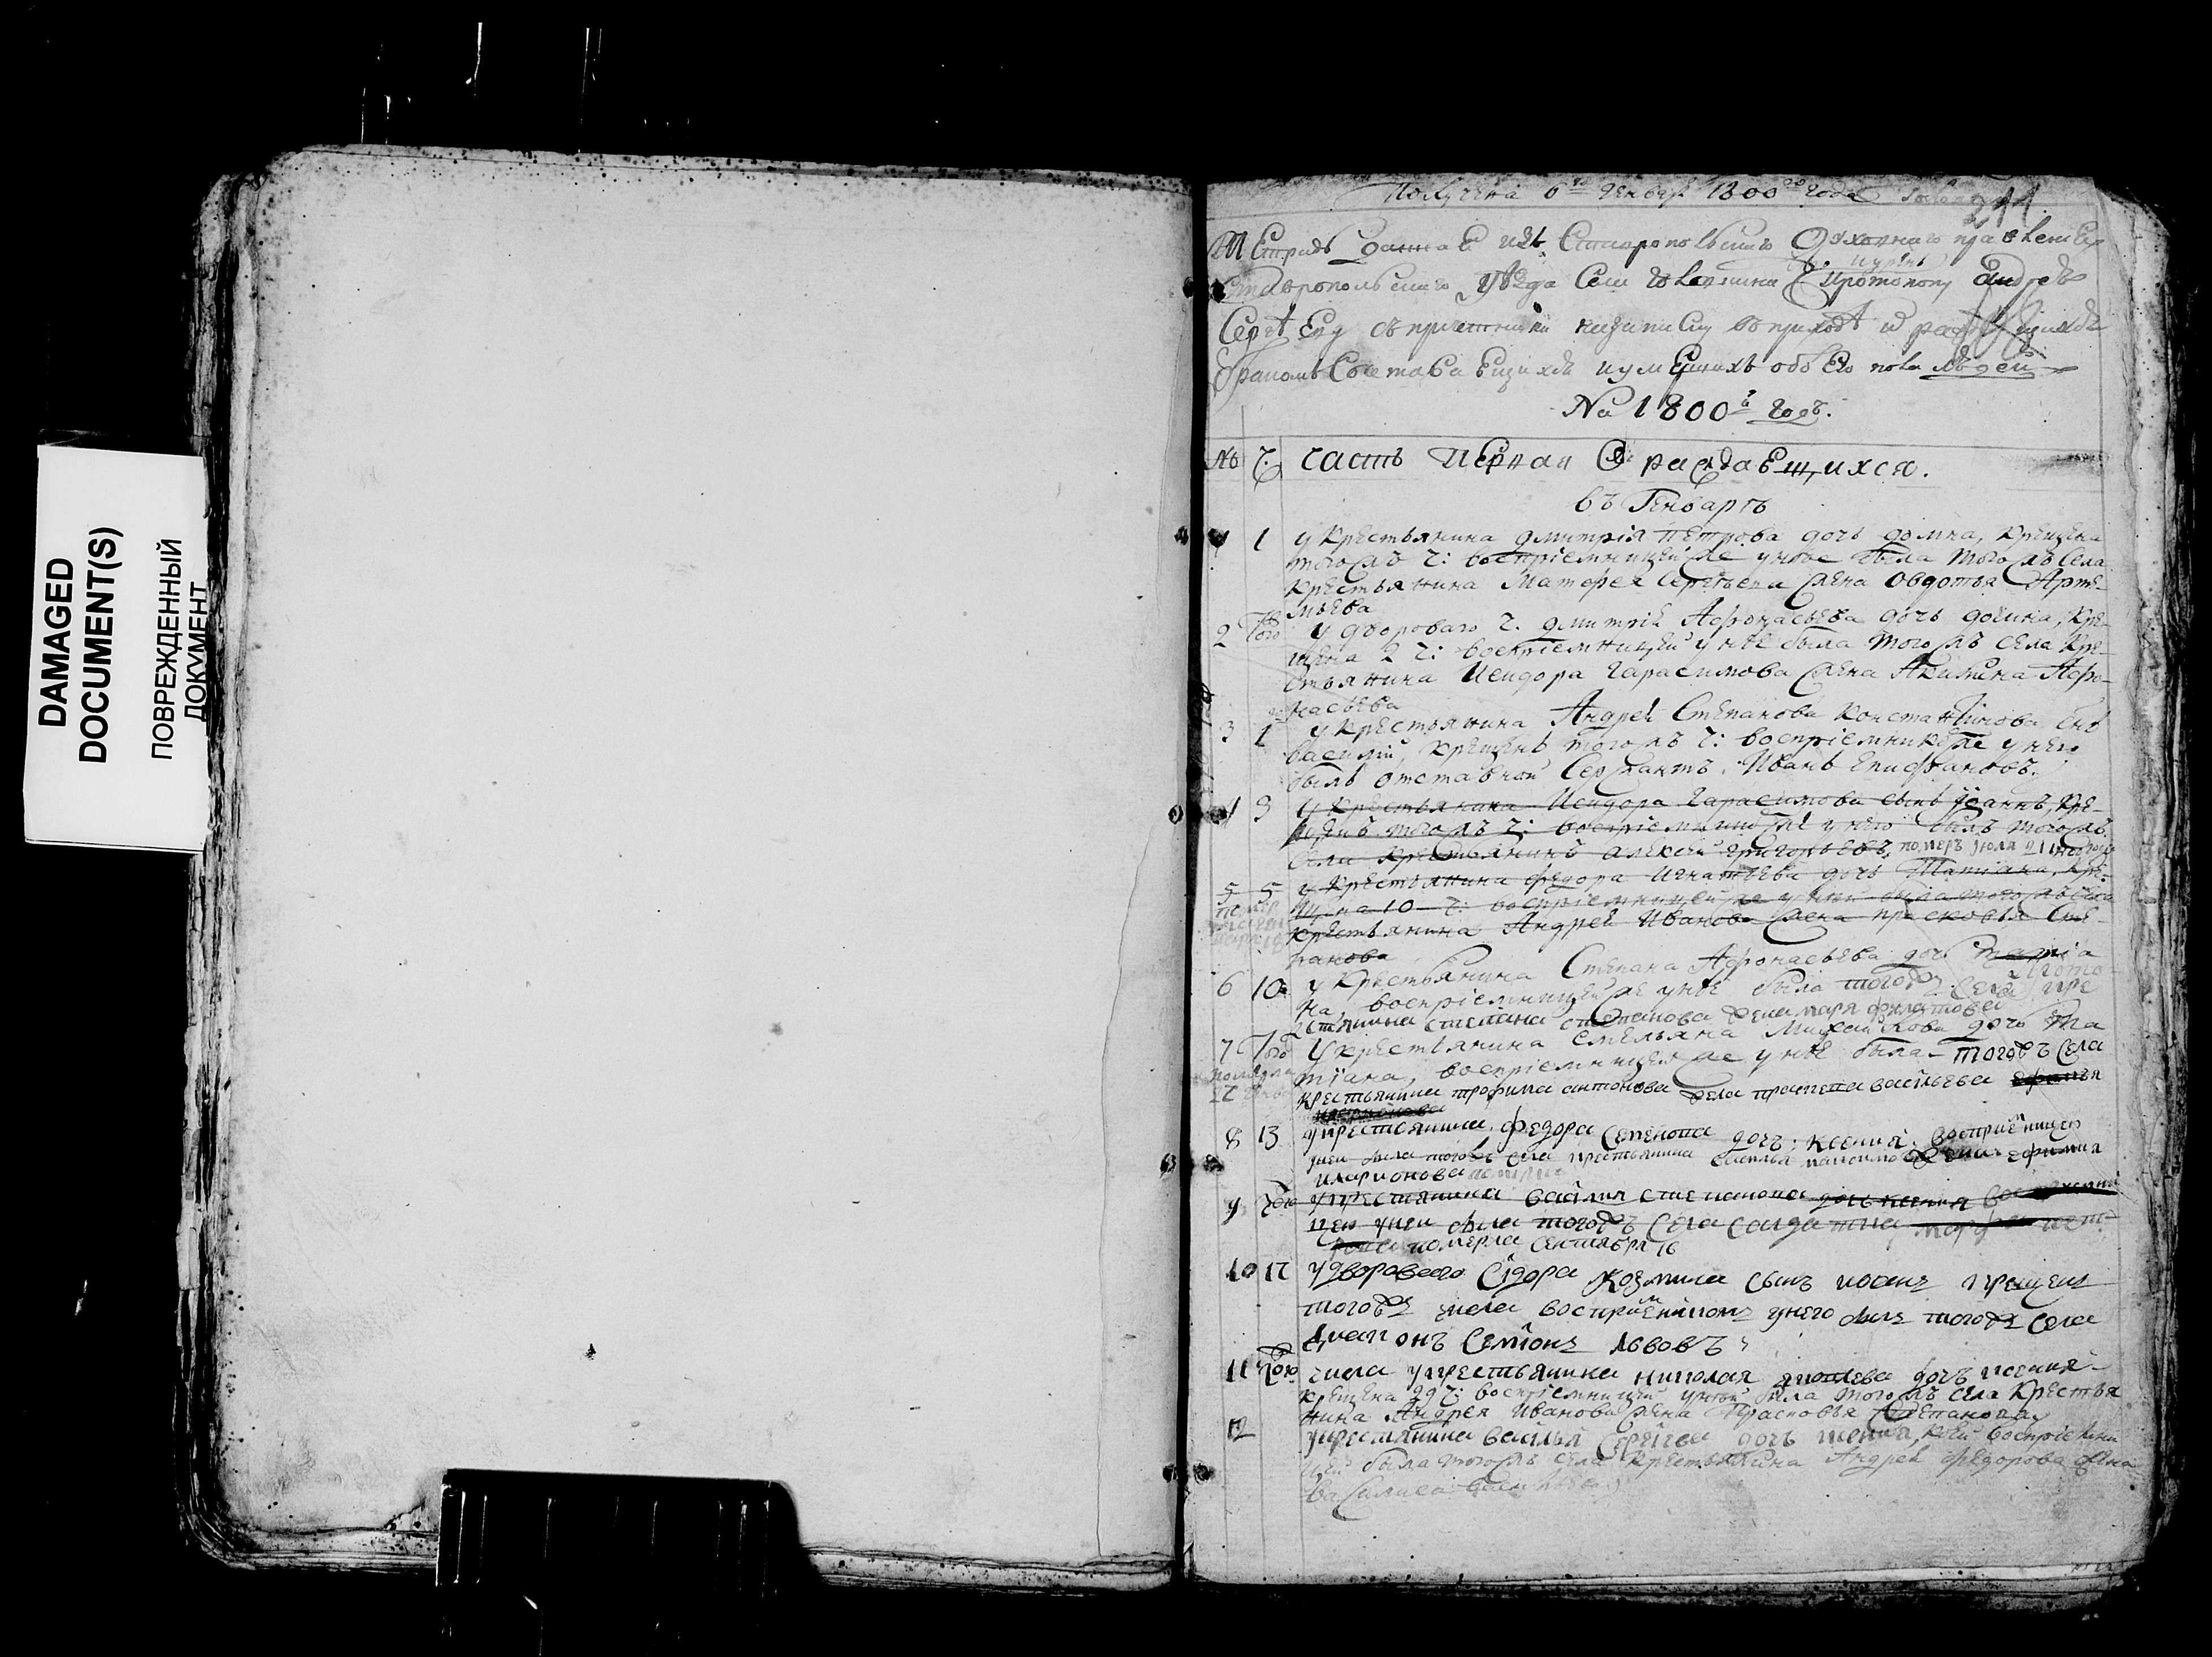 DAMAGED
DOCUMENT(S)
ПОВРЕЖДЕННЫЙ
ДОКУМЕНТ
Получена 6го Генваря 1800го года
211
Тетрадь данная изъ Ставропольскаго Духовнаго правления
Ставропольскаго уѣзда Села протопопу Андрею
Сергѣеву съ причетники на записку въ приходѣ
бракомъ Сочетавающихся и умершихъ обоего пола людей
На 1800й годъ.
№ Ч. часть Первая О раждающихся.
въ Генварѣ
1 1 у крестьянина дмитрія петрова дочь домна, крещена
тогожъ ч: воспріемницей же у нѣе была тогожъ села
крестьянина Матфея Сергѣева жена Овдотья Арте-
мьева
2 того у двороваго ч. дмитрія Афонасьева дочь домна, кре-
щена 2 ч: воспріемницей у нѣе была тогожъ села кре-
стьянина Исидора Гарасимова жена Акилина Афо-
насьева
3 1 у крестьянина Андрея Степанова Константинова сын
василій, крещенъ тогожъ ч: воспріемникомъ же у него
былъ отставной Сержантъ Иванъ Епифановъ.
4 3 у крестьянина Исидора Гарасимова сынъ Іоаннъ, кре-
щенъ тогожъ ч: воспріемникомъ же у него былъ тогожъ
села крестьянинъ алексей григорьевъ, померъ июля 21
5 5 у крестьянина федора Игнатьева дочь Татіана, кре-
щена 10 ч: воспріемницей же у ней была тогожъ села
крестьянина Андрея Иванова жена прасковья Сте-
панова
6 10 у крестьянина Степана Афонасьева дочь
на, воспріемницей же у нѣе была тогожъ села кре
стянина степана степанова жена маря филатова
7 того у крестьянина Емельяна Михайлова дочь Та
тіана, воспріемницей же у нѣе была тогожъ села
крестьянина трофима антонова жена васільева
8 13 у крестьянина федора Семенова дочь ксения воспріемницей
у ней была тогожъ села крестьянина василья жена ефимия
иларионова
9 того у крестянина василия степанова дочь ксения
цей у ней была тогожъ села салдатка
померла сентября 16
10 17 у двороваго Сідора Козмина сынъ иоанъ крещенъ
тогожъ числа воспріемникомъ у него былъ тогожъ села
диаконъ Семіонъ Львовъ
11 того числа у крестьянина николая яковлева дочь ксения
крещена 29 ч: воспріемницей у ней была тогожъ села крестья
нина Андрея Иванова жена Прасковья Степанова
12 у крестянина василья Сергеева дочь ксения, коей воспріемни
цей была тогожъ села крестьянина Андрея федорова жена